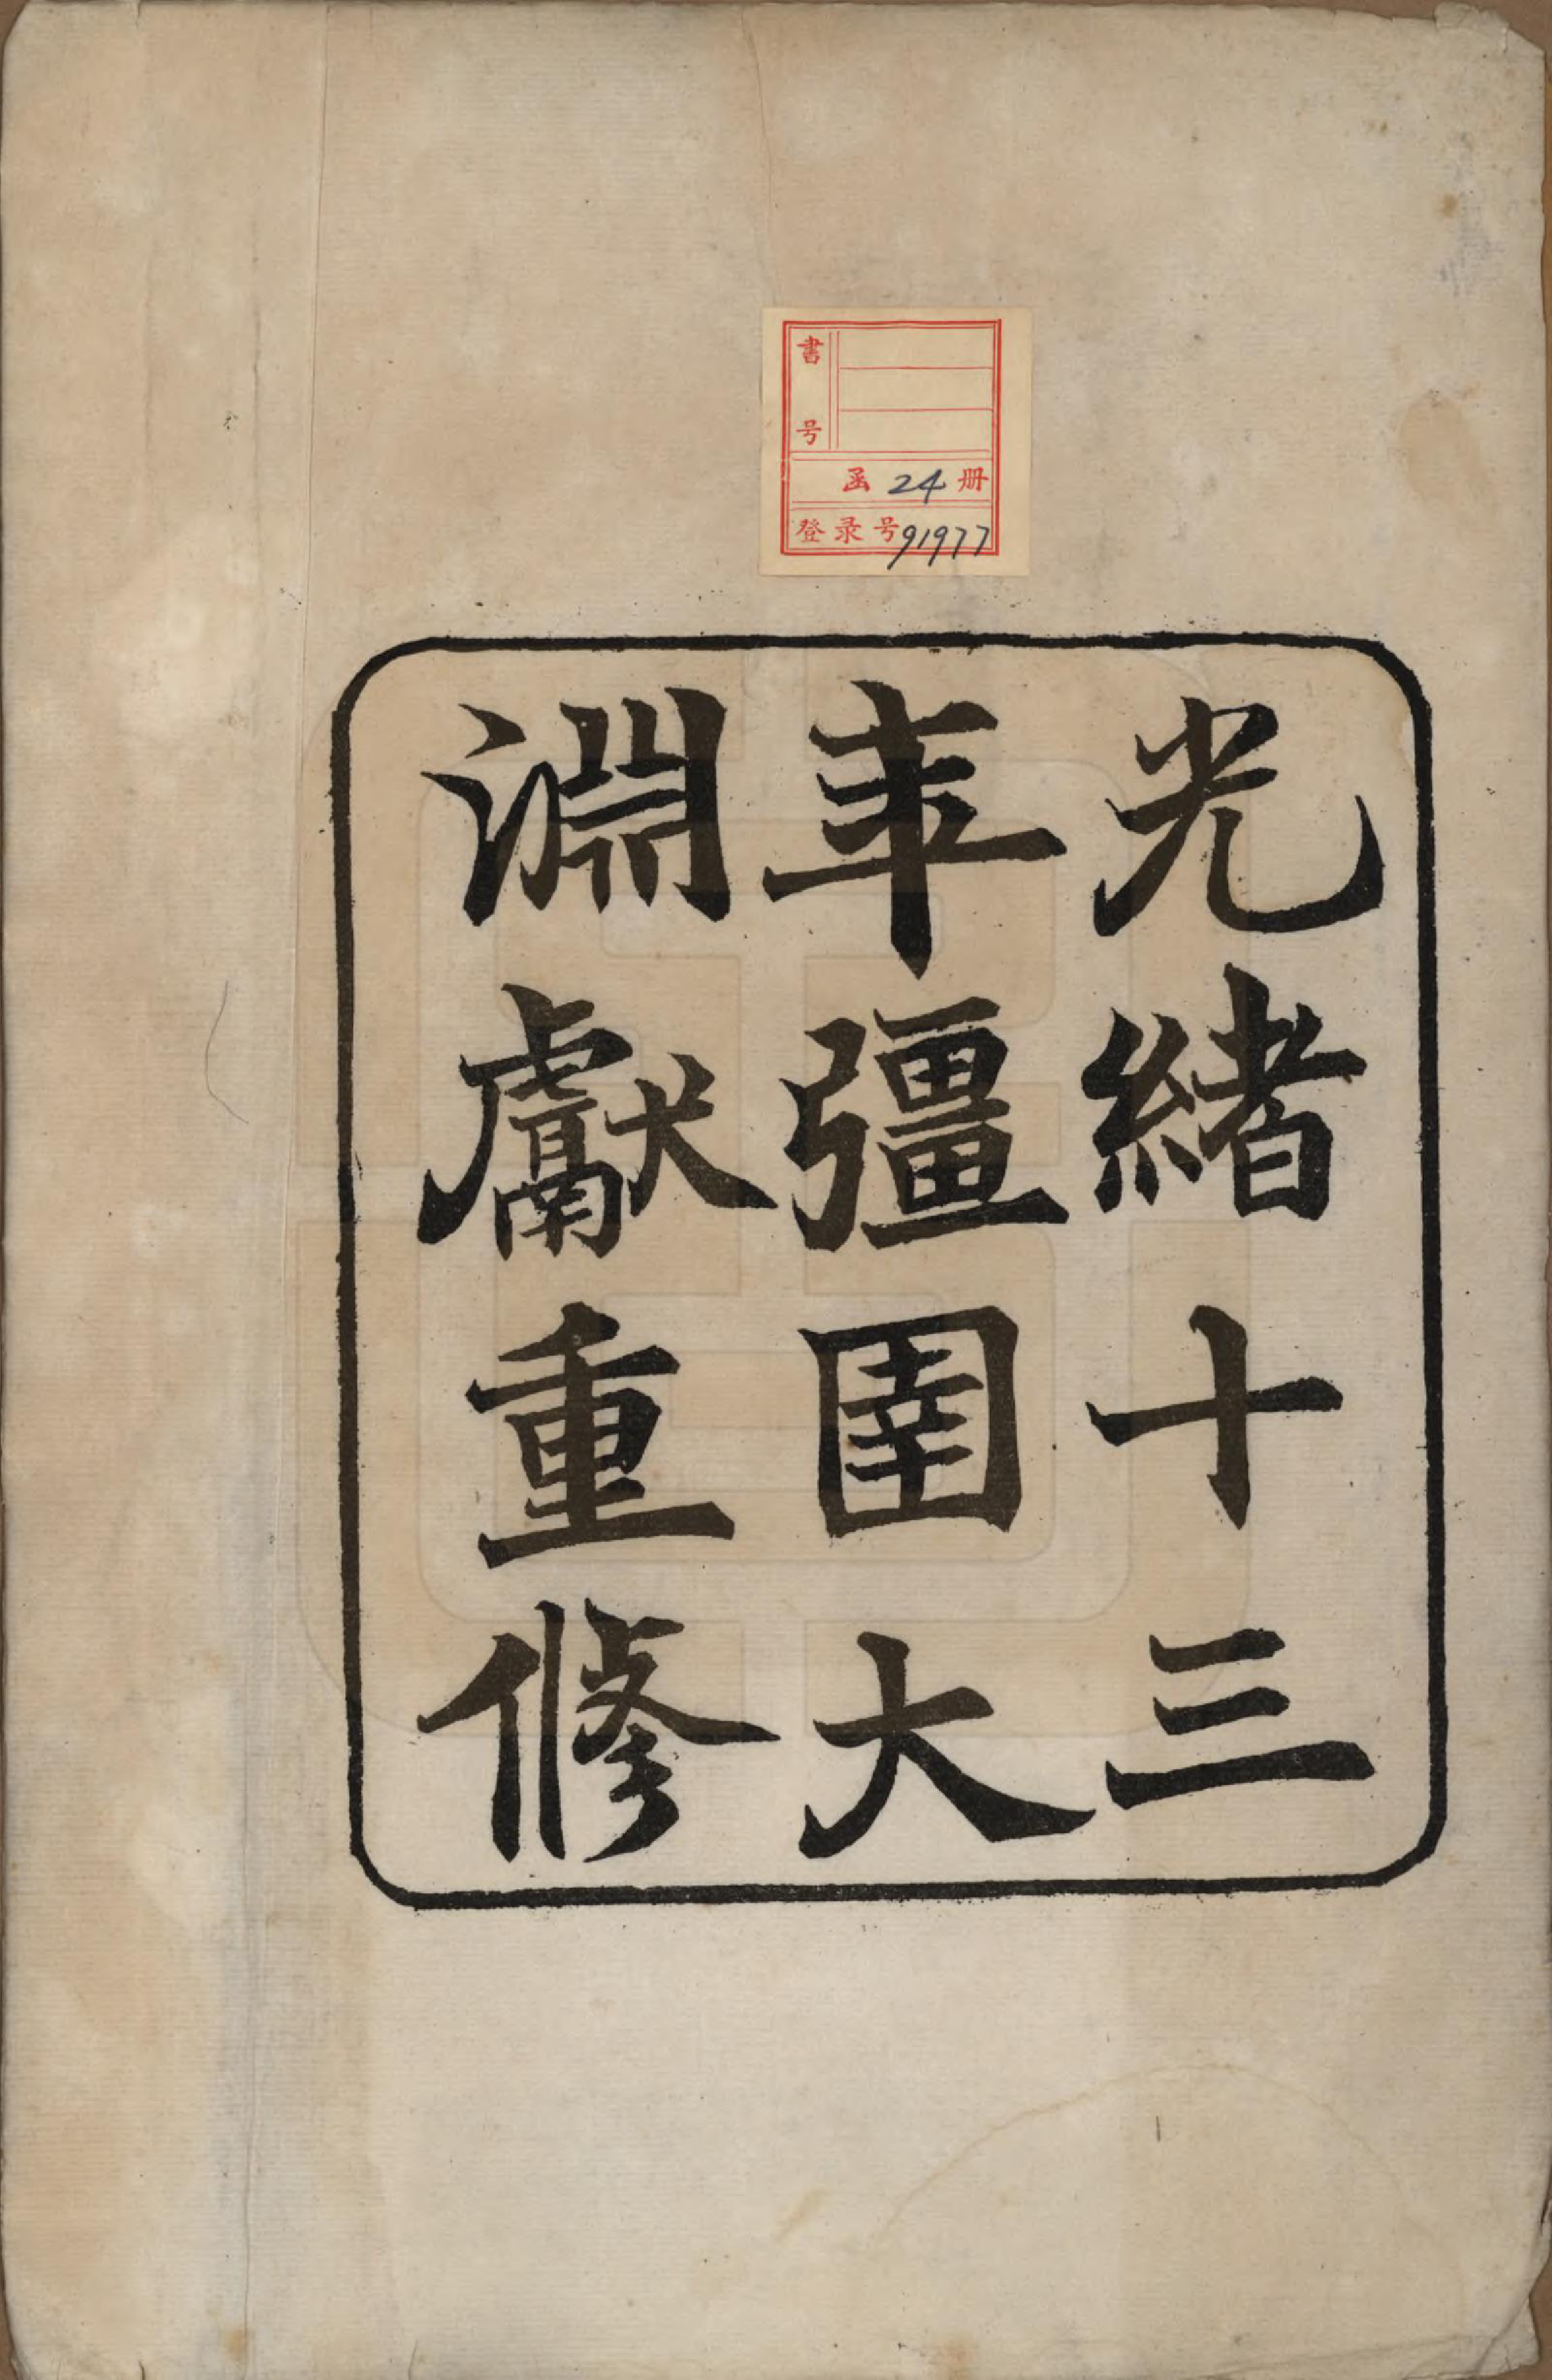 書号
函 24 册
登录号 91977
光緒十三
年彊圉大
淵獻重修